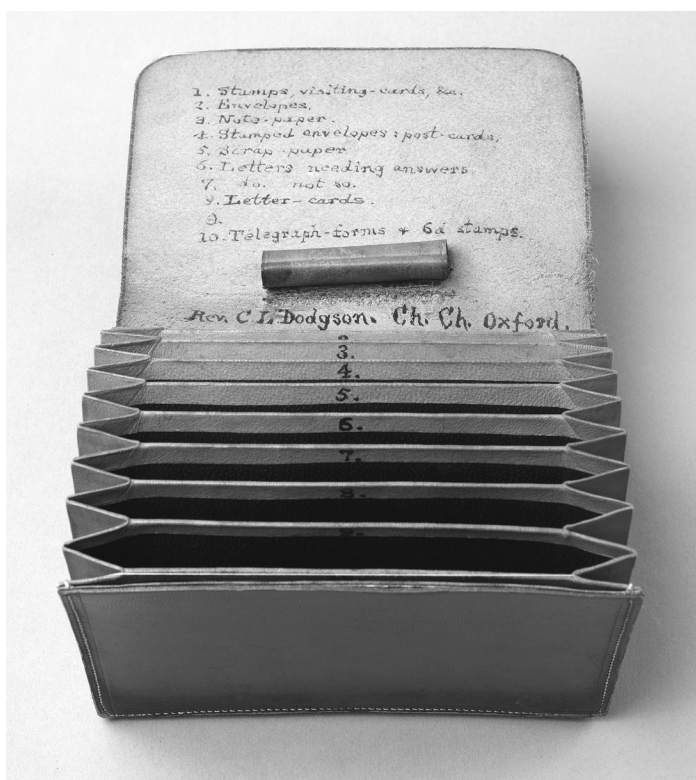 1. Stamps, visiting-cards, &c.
2. Envelopes.
3. Note-paper.
4. Stamped envelopes : post-cards.
5. Scrap-paper
6. Letters needing answers.
7. do. not so.
8. Letter-cards.
9.
10. Telegraph-forms & 6d stamps.
Rev. C L Dodgson. Ch. Ch. Oxford.
2
3.
4.
5.
6.
7.
8.
9.